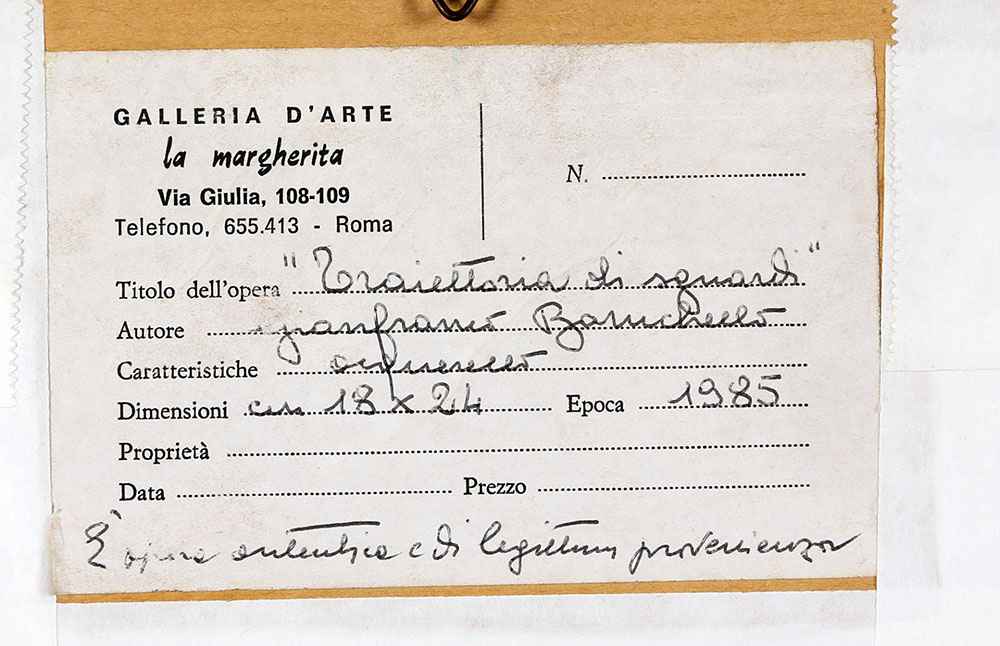 GALLERIA D'ARTE
la margherita
Via Giulia, 108-109
Telefono, 655.413 - Roma
N.
Titolo dell'opera "Traiettoria di sguardi"
Autore gianfranco Baruchello
Caratteristiche acquerello
Dimensioni cm 18 x 24 Epoca 1985
Proprietà
Data Prezzo
E' opera autentica e di legittima provenienza